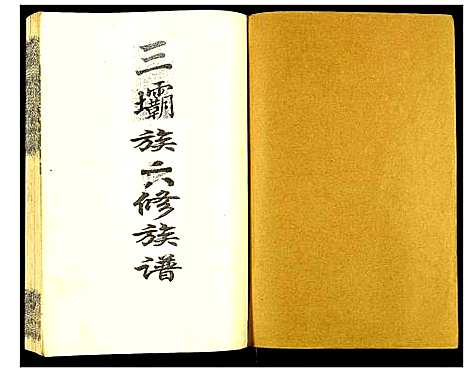 三壩族六修族谱